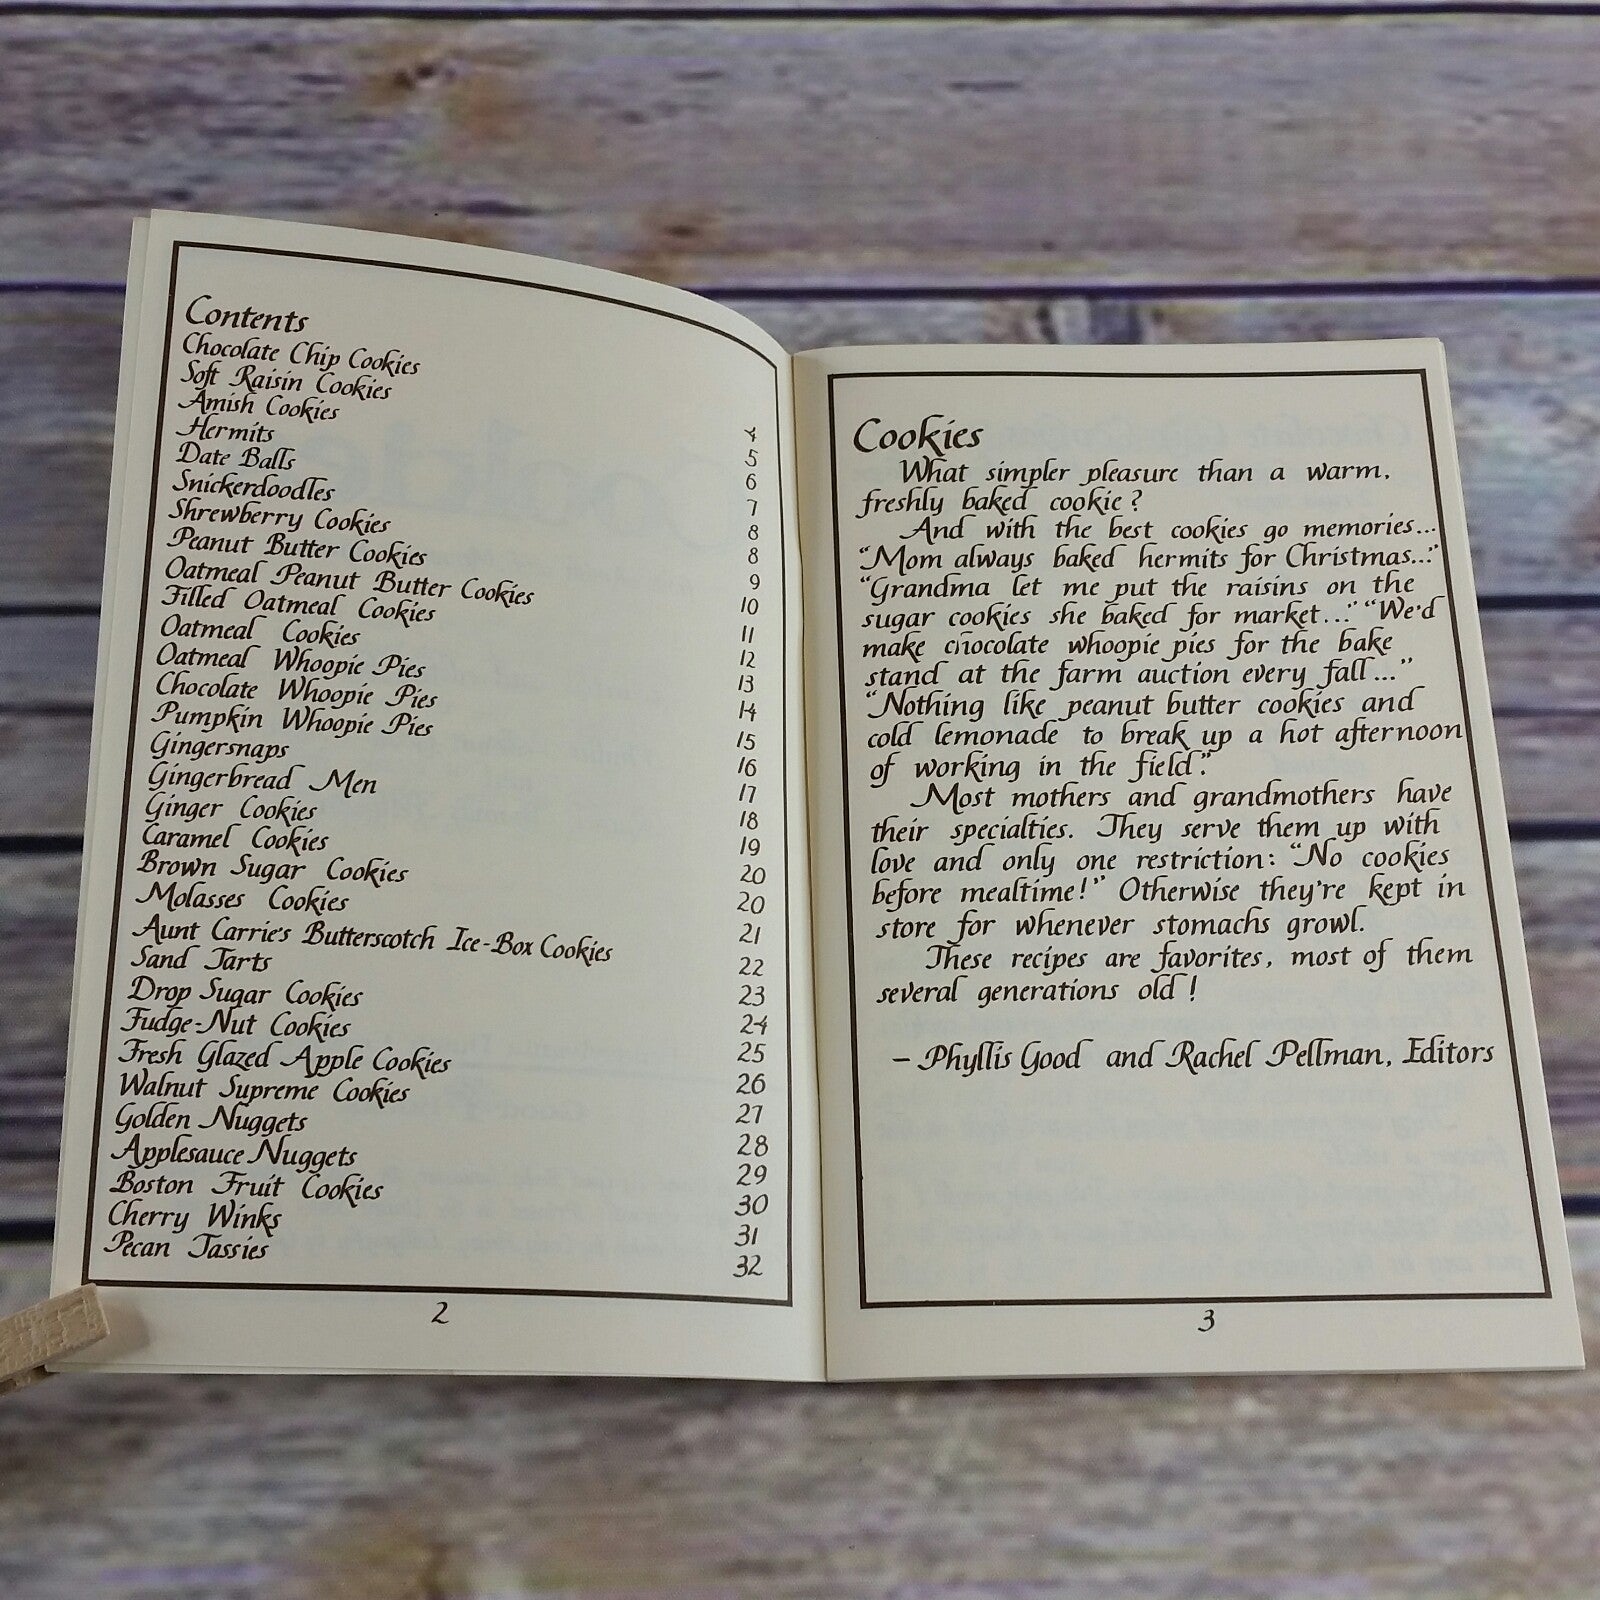 Contents
Chocolate Chip Cookies 4
Soft Raisin Cookies 5
Amish Cookies 6
Hermits 7
Date Balls 8
Snickerdoodles 8
Shrewberry Cookies 9
Peanut Butter Cookies 10
Oatmeal Peanut Butter Cookies 11
Filled Oatmeal Cookies 12
Oatmeal Cookies 13
Oatmeal Whoopie Pies 14
Chocolate Whoopie Pies 15
Pumpkin Whoopie Pies 16
Gingersnaps 17
Gingerbread Men 18
Ginger Cookies 19
Caramel Cookies 20
Brown Sugar Cookies 20
Molasses Cookies 21
Aunt Carrie's Butterscotch Ice-Box Cookies 22
Sand Tarts 23
Drop Sugar Cookies 24
Fudge-Nut Cookies 25
Fresh Glazed Apple Cookies 26
Walnut Supreme Cookies 27
Golden Nuggets 28
Applesauce Nuggets 29
Boston Fruit Cookies 30
Cherry Winks 31
Pecan Tassies 32
2
Cookies
What simpler pleasure than a warm,
freshly baked cookie?
And with the best cookies go memories...
"Mom always baked hermits for Christmas..."
"Grandma let me put the raisins on the
sugar cookies she baked for market..." "We'd
make chocolate whoopie pies for the bake
stand at the farm auction every fall..."
"Nothing like peanut butter cookies and
cold lemonade to break up a hot afternoon
of working in the field."
Most mothers and grandmothers have
their specialties. They serve them up with
love and only one restriction: "No cookies
before mealtime!" Otherwise they're kept in
store for whenever stomachs growl.
These recipes are favorites, most of them
several generations old!
– Phyllis Good and Rachel Pellman, Editors
3